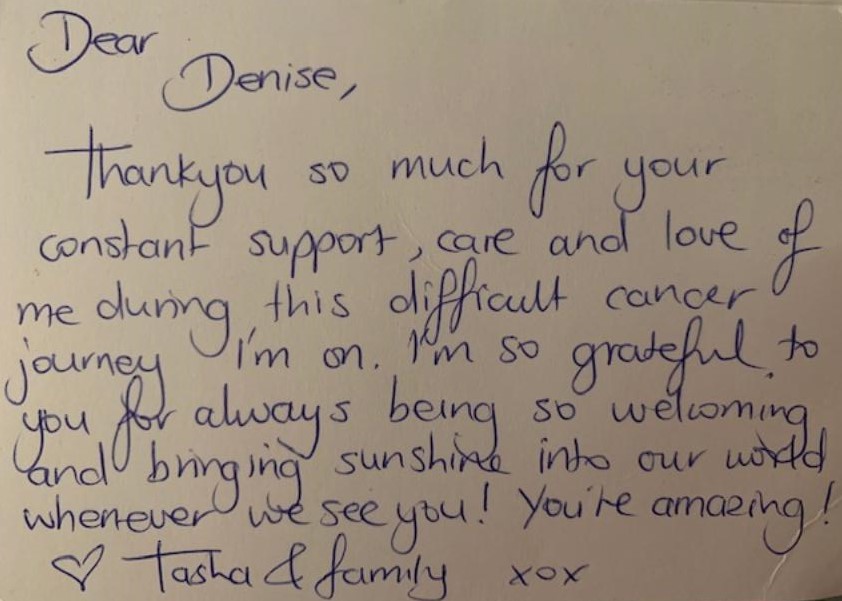 Dear
Denise,
Thankyou so much for your
constant support, care and love of
me during this difficult cancer
journey I'm on. I'm so grateful to
you for always being so welcoming
and bringing sunshine into our world
whenever we see you! You're amazing!
♡ Tasha & family xox